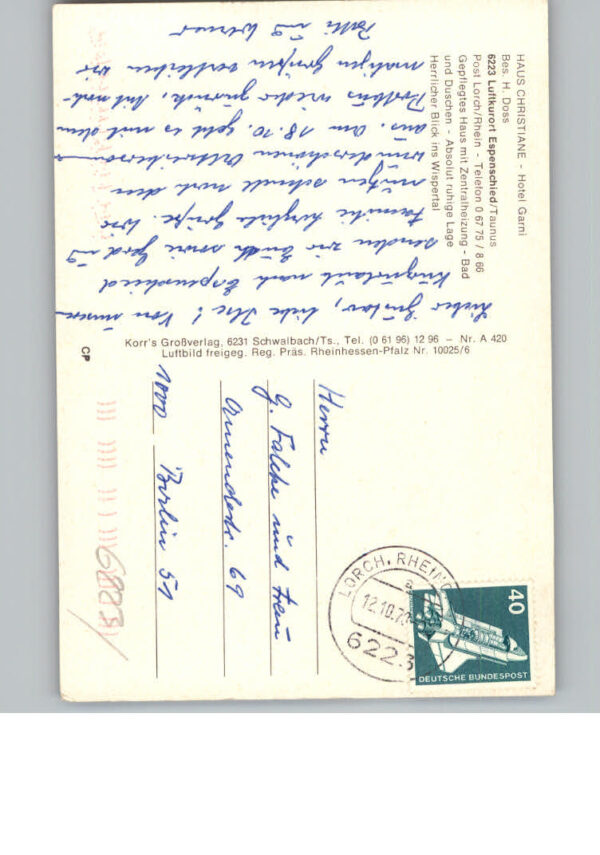 HAUS CHRISTIANE - Hotel Garni
Bes. H. Doss
6223 Luftkurort Espenschied/Taunus
Post Lorch/Rhein - Telefon 0 67 75 / 8 66
Gepflegtes Haus mit Zentralheizung - Bad
und Duschen - Absolut ruhige Lage
Herrlicher Blick ins Wispertal
Lieber Gustav, liebe Ilse! Von unserem
Kurzurlaub nach Espenschied
senden wir Euch sowie Gerd u.
Familie herzliche Grüße. Wir
nützen schnell noch den
wunderschönen
aus. Am 18.10. geht es mit dem
wieder zurück. Mit noch-
maligen Grüßen verbleiben wir
und Werner
Korr's Großverlag, 6231 Schwalbach/Ts., Tel. (0 61 96) 12 96 – Nr. A 420
Luftbild freigeg. Reg. Präs. Rheinhessen-Pfalz Nr. 10025/6
CP
Herrn
G. Falcke und Frau
69
1000 Berlin 51
LORCH, RHEING
a
12.10.7
6223
40
DEUTSCHE BUNDESPOST